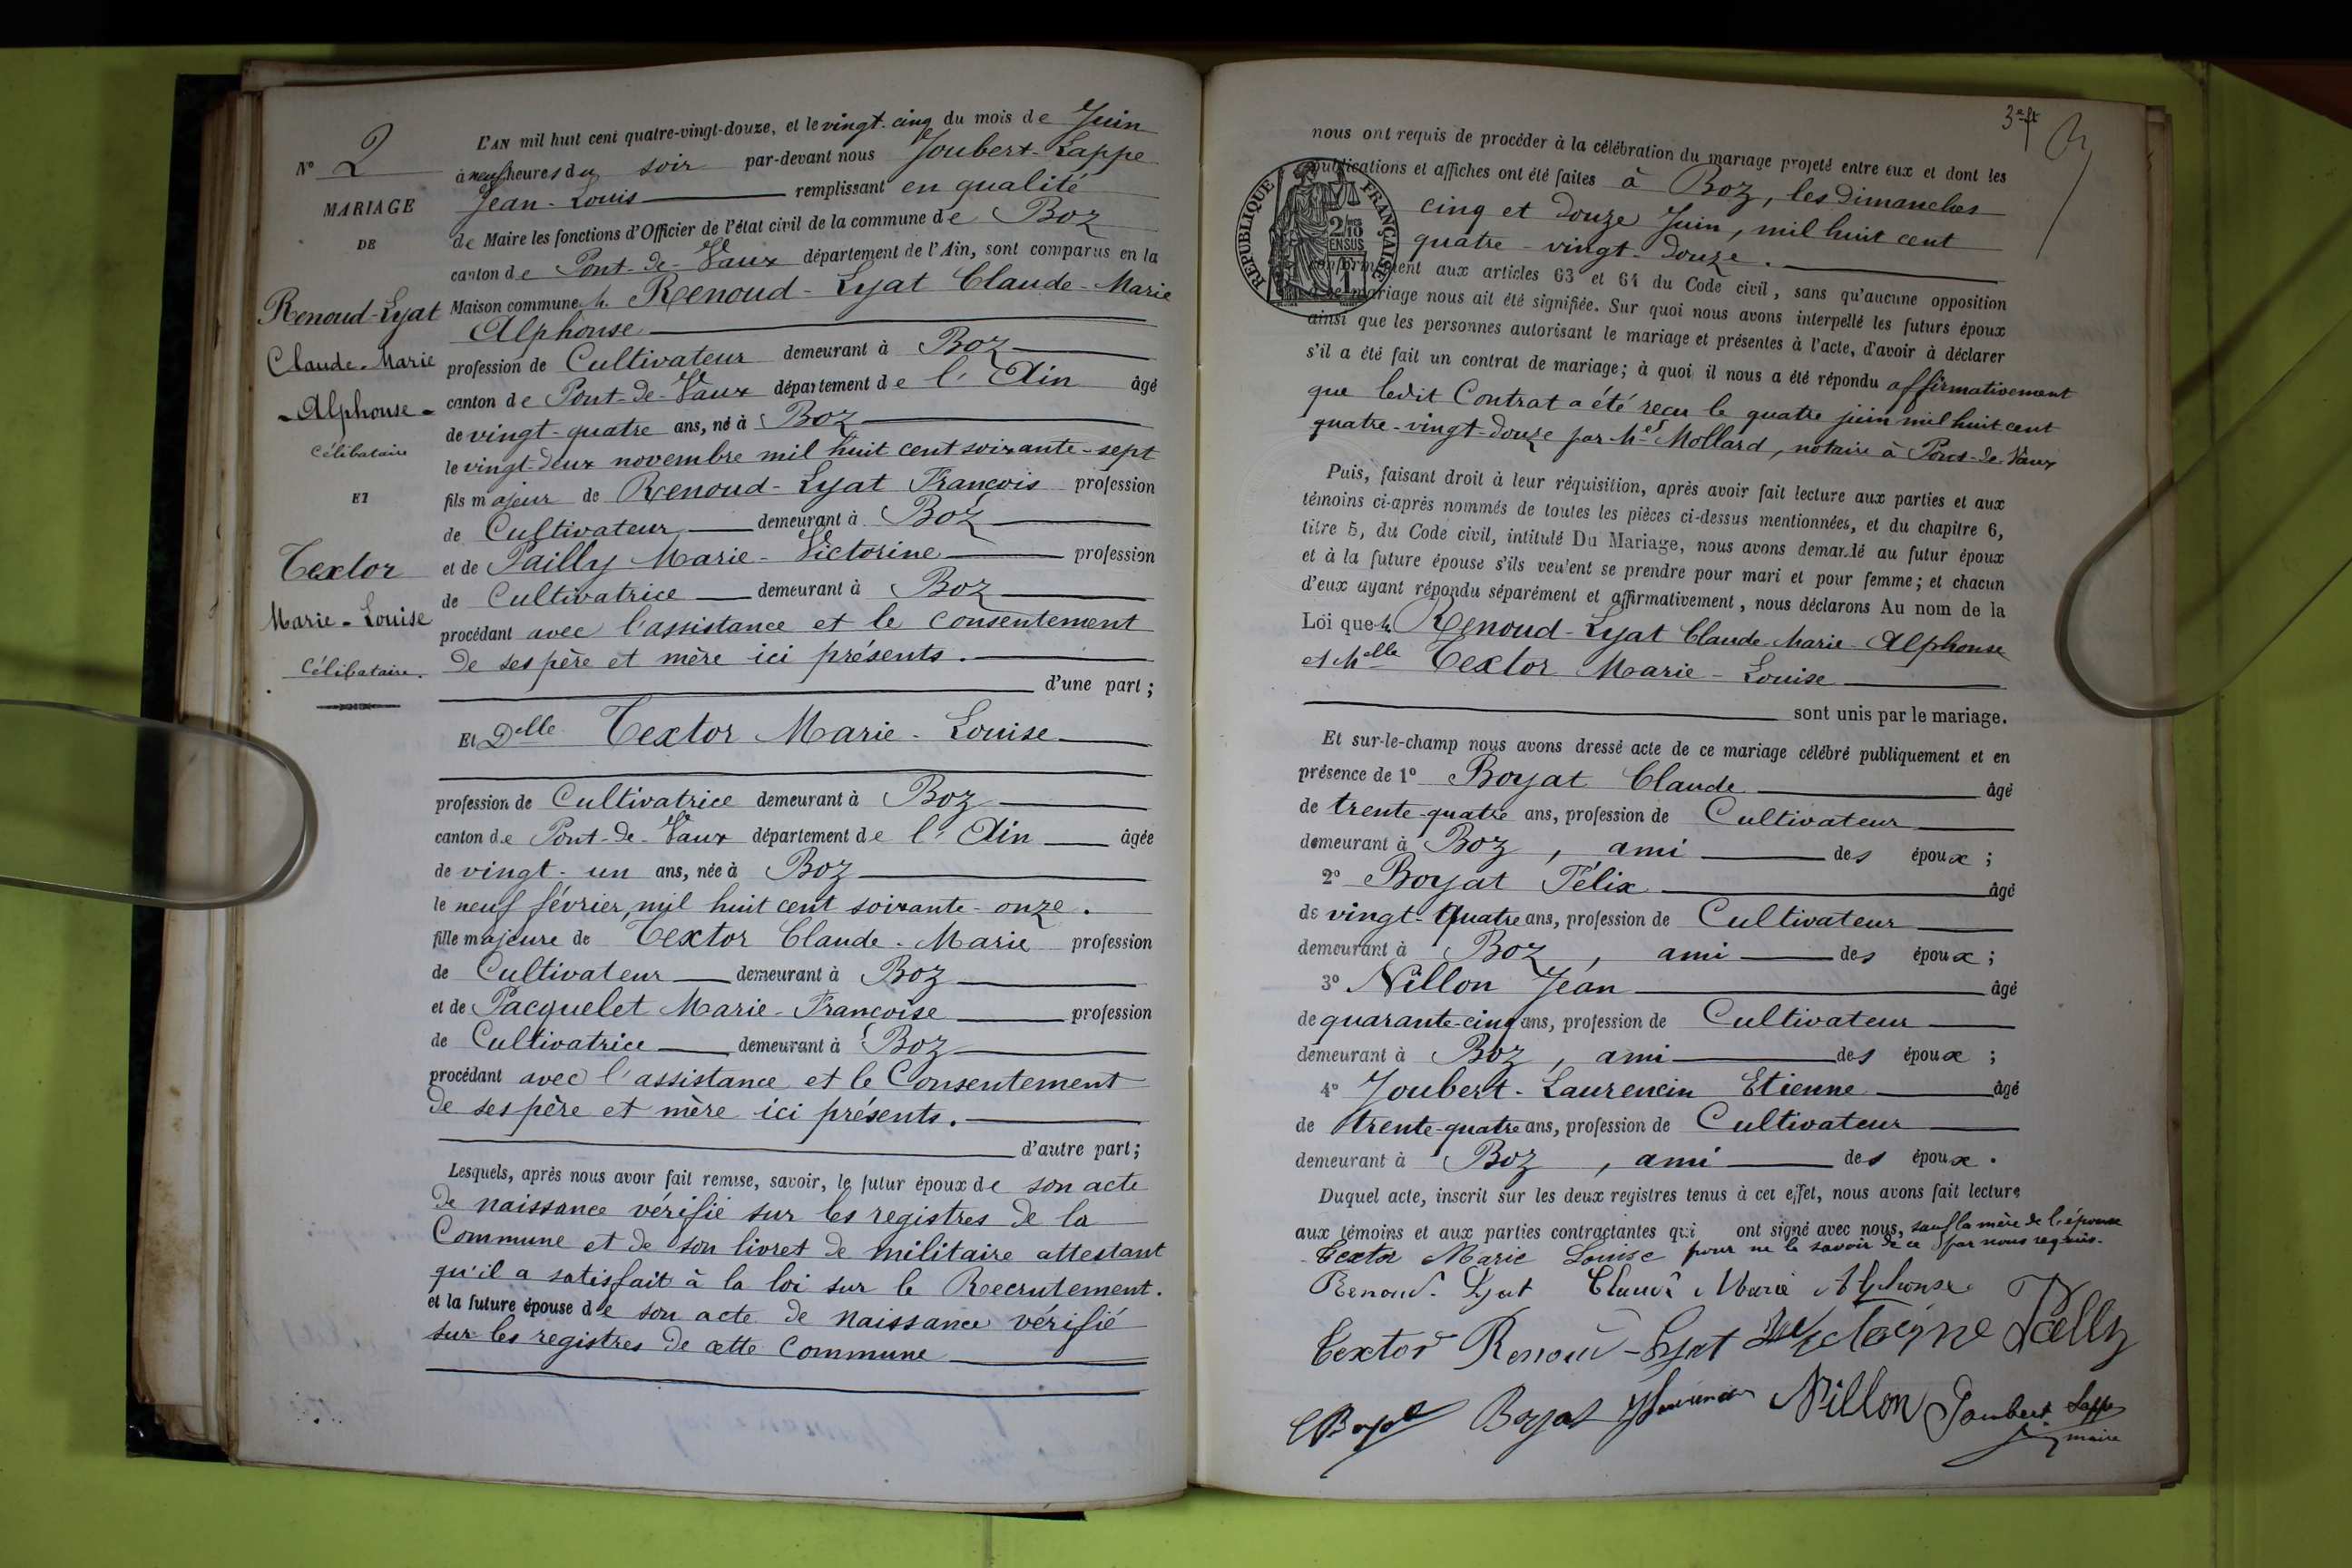 N° 2
MARIAGE
DE
Renoud-Lyat
Claude-Marie
-Alphonse-
Célibataire
ET
Textor
Marie-Louise
Célibataire.
L'AN mil huit cent quatre-vingt-douze, et le vingt-cinq du mois de Juin
à neuf heures du soir par-devant nous Joubert-Lappe
Jean-Louis remplissant en qualité
de Maire les fonctions d'Officier de l'état civil de la commune de Boz
canton de Pont-de-Vaux département de l'Ain, sont comparus en la
Maison commune Mr Renoud-Lyat Claude-Marie
Alphonse
profession de Cultivateur demeurant à Boz
canton de Pont-de-Vaux département de l'Ain âgé
de vingt-quatre ans, né à Boz
le vingt-deux novembre mil huit cent soixante-sept
fils majeur de Renoud-Lyat François profession
de Cultivateur demeurant à Boz
et de Pailly Marie-Victorine profession
de Cultivatrice demeurant à Boz
procédant avec l'assistance et le Consentement
de ses père et mère ici présents.
d'une part;
Et Delle Textor Marie-Louise
profession de Cultivatrice demeurant à Boz
canton de Pont-de-Vaux département de l'Ain âgée
de vingt-un ans, née à Boz
le neuf février, mil huit cent soixante-onze.
fille majeure de Textor Claude-Marie profession
de Cultivateur demeurant à Boz
et de Pacquelet Marie-Françoise profession
de Cultivatrice demeurant à Boz
procédant avec l'assistance et le Consentement
de ses père et mère ici présents.
d'autre part;
Lesquels, après nous avoir fait remise, savoir, le futur époux de son acte
de naissance vérifié sur les registres de la
Commune et de son livret de militaire attestant
qu'il a satisfait à la loi sur le Recrutement.
et la future épouse de son acte de naissance vérifié
sur les registres de cette Commune
nous ont requis de procéder à la célébration du mariage projeté entre eux et dont les
publications et affiches ont été faites à Boz, les dimanches
cinq et douze Juin, mil huit cent
quatre-vingt-douze.
RÉPUBLIQUE FRANÇAISE
conformément aux articles 63 et 64 du Code civil, sans qu'aucune opposition
mariage nous ait été signifiée. Sur quoi nous avons interpellé les futurs époux
ainsi que les personnes autorisant le mariage et présentes à l'acte, d'avoir à déclarer
s'il a été fait un contrat de mariage; à quoi il nous a été répondu affirmativement
que ledit Contrat a été reçu le quatre juin mil huit cent
quatre-vingt-douze par Me Mollard, notaire à Pont-de-Vaux
Puis, faisant droit à leur réquisition, après avoir fait lecture aux parties et aux
témoins ci-après nommés de toutes les pièces ci-dessus mentionnées, et du chapitre 6,
titre 5, du Code civil, intitulé Du Mariage, nous avons demandé au futur époux
et à la future épouse s'ils veulent se prendre pour mari et pour femme; et chacun
d'eux ayant répondu séparément et affirmativement, nous déclarons Au nom de la
Loi que Mr Renoud-Lyat Claude-Marie-Alphonse
et Melle Textor Marie-Louise
sont unis par le mariage.
Et sur-le-champ nous avons dressé acte de ce mariage célébré publiquement et en
présence de 1° Boyat Claude âgé
de trente-quatre ans, profession de Cultivateur
demeurant à Boz, ami des époux;
2° Boyat Félix âgé
de vingt-quatre ans, profession de Cultivateur
demeurant à Boz, ami des époux;
3° Nillon Jean âgé
de quarante-cinq ans, profession de Cultivateur
demeurant à Boz, ami des époux;
4° Joubert-Laurencin Etienne âgé
de trente-quatre ans, profession de Cultivateur
demeurant à Boz, ami des époux.
Duquel acte, inscrit sur les deux registres tenus à cet effet, nous avons fait lecture
aux témoins et aux parties contractantes qui ont signé avec nous, sauf la mère de l'épouse
Textor Marie Louise pour ne le savoir de ce par nous requis.
Renoud-Lyat Claude Marie Alphonse
Textor Renoud-Lyat Pailly
Boyat Nillon Joubert-Lappe
maire